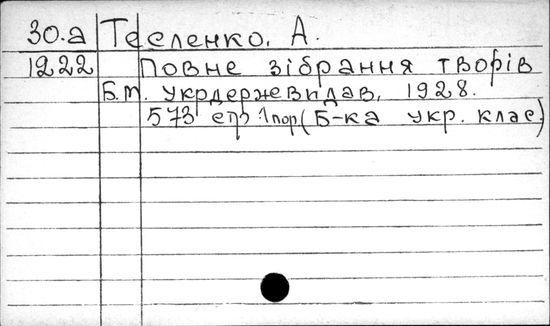 30.а Тесленко. А.
1222 Повне зібрання творів
Б.м. Укрдержевидав, 1928.
573 стр 1 пор. (Б-ка укр. клас.)